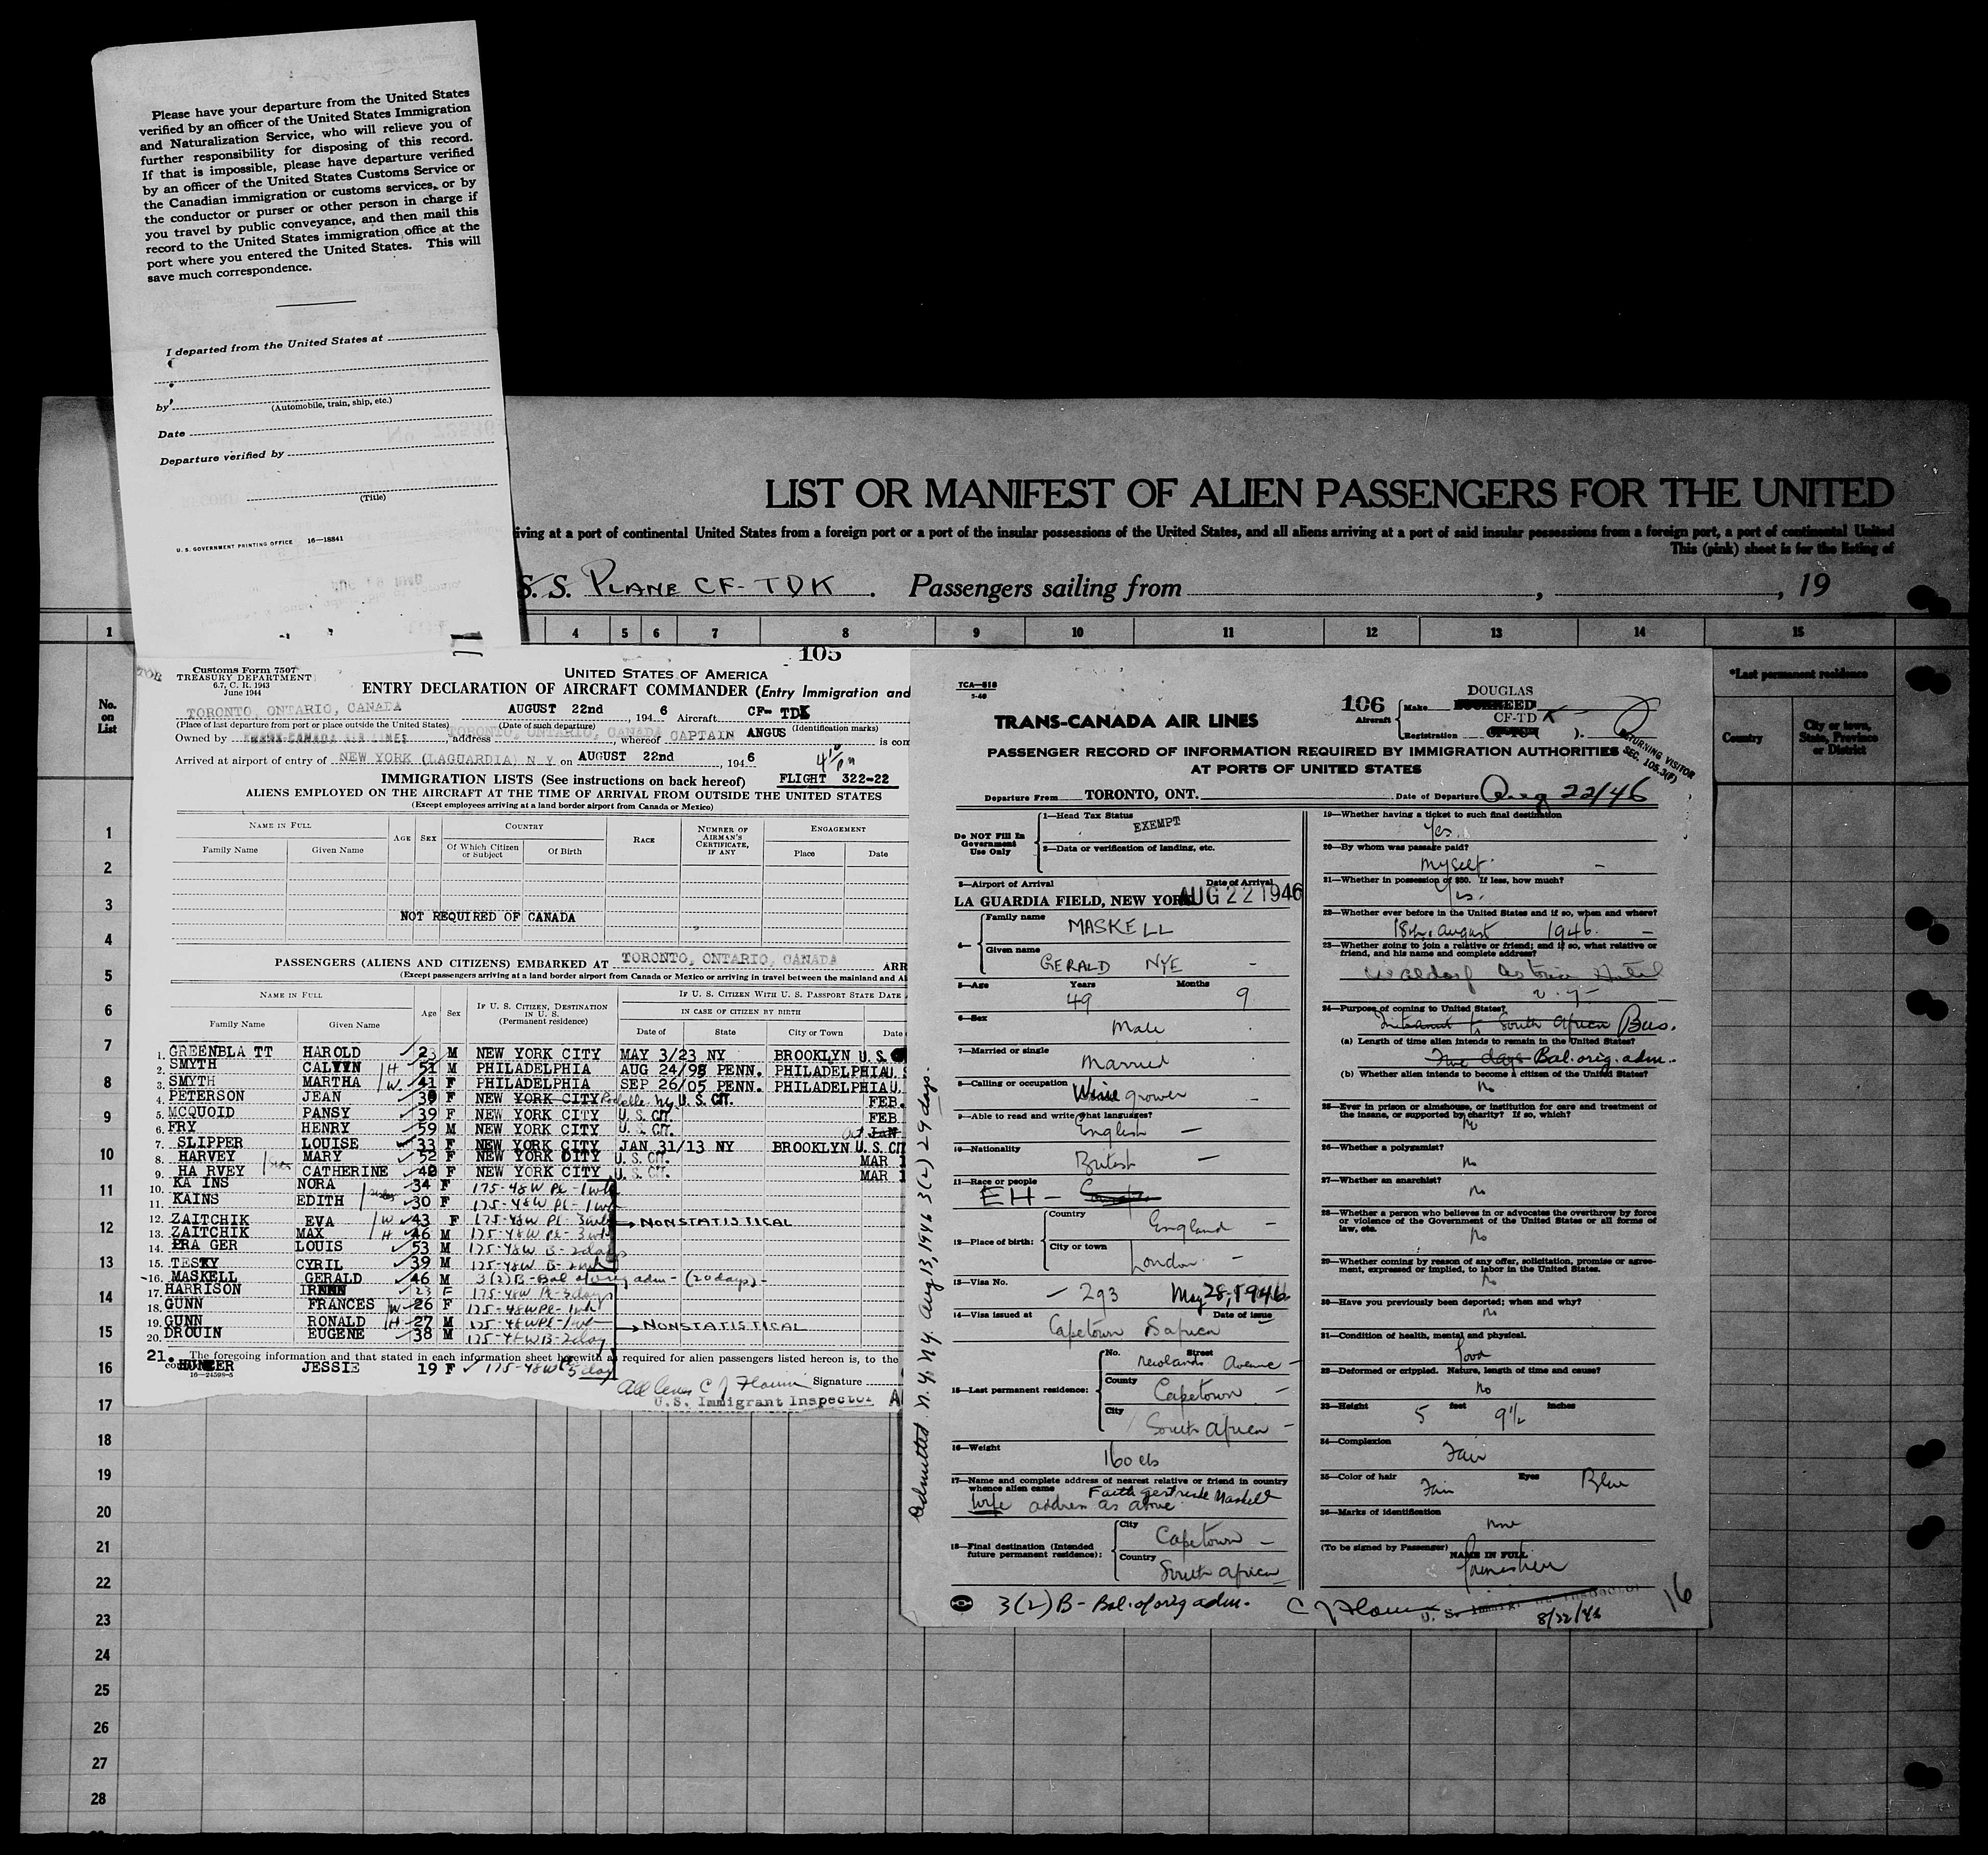 Please have your departure from the United States
verified by an officer of the United States Immigration
and Naturalization Service, who will relieve you of
further responsibility for disposing of this record.
If that is impossible, please have departure verified
by an officer of the United States Customs Service or
the Canadian immigration or customs services, or by
the conductor or purser or other person in charge if
you travel by public conveyance, and then mail this
record to the United States immigration office at the
port where you entered the United States. This will
save much correspondence.
I departed from the United States at
by
(Automobile, train, ship, etc.)
Date
Departure verified by
(Title)
U. S. GOVERNMENT PRINTING OFFICE 16—18841
LIST OR MANIFEST OF ALIEN PASSENGERS FOR THE UNITED
iving at a port of continental United States from a foreign port or a port of the insular possessions of the United States, and all aliens arriving at a port of said insular possessions from a foreign port, a port of continental United
This (pink) sheet is for the listing of
S. S. PLANE CF-TDK . Passengers sailing from , , 19
1 4 5 6 7 8 9 10 11 12 13 14 15
No. on List
*Last permanent residence
Country
City or town, State, Province or District
1
2
3
4
5
6
7
8
9
10
11
12
13
14
15
16
17
18
19
20
21
22
23
24
25
26
27
28
105
Customs Form 7507
TREASURY DEPARTMENT
6.7, C. R. 1943
June 1944
UNITED STATES OF AMERICA
ENTRY DECLARATION OF AIRCRAFT COMMANDER (Entry Immigration and
TORONTO, ONTARIO, CANADA AUGUST 22nd , 1946 Aircraft CF- TDK
(Place of last departure from port or place outside the United States) (Date of such departure) (Identification marks)
Owned by TRANS-CANADA AIR LINES , address TORONTO, ONTARIO, CANADA , whereof CAPTAIN ANGUS is com
Arrived at airport of entry of NEW YORK (LAGUARDIA) N Y on AUGUST 22nd , 1946
IMMIGRATION LISTS (See instructions on back hereof) FLIGHT 322-22
ALIENS EMPLOYED ON THE AIRCRAFT AT THE TIME OF ARRIVAL FROM OUTSIDE THE UNITED STATES
(Except employees arriving at a land border airport from Canada or Mexico)
NAME IN FULL AGE SEX COUNTRY RACE NUMBER OF AIRMAN'S CERTIFICATE, IF ANY ENGAGEMENT
Family Name Given Name Of Which Citizen or Subject Of Birth Place Date
NOT REQUIRED OF CANADA
PASSENGERS (ALIENS AND CITIZENS) EMBARKED AT TORONTO, ONTARIO, CANADA ARR
(Except passengers arriving at a land border airport from Canada or Mexico or arriving in travel between the mainland and Al
NAME IN FULL Age Sex IF U. S. CITIZEN, DESTINATION IN U. S. (Permanent residence) IF U. S. CITIZEN WITH U. S. PASSPORT STATE DATE
IN CASE OF CITIZEN BY BIRTH
Family Name Given Name Date of State City or Town Date
1. GREENBLA TT HAROLD 23 M NEW YORK CITY MAY 3/23 NY BROOKLYN U.S.
2. SMYTH CALVIN H 51 M PHILADELPHIA AUG 24/95 PENN. PHILADELPHIA U.S
3. SMYTH MARTHA W 41 F PHILADELPHIA SEP 26/05 PENN. PHILADELPHIA U.
4. PETERSON JEAN F NEW YORK CITY U.S. CIT. FEB.
5. MCQUOID PANSY 39 F NEW YORK CITY U.S. CIT. FEB
6. FRY HENRY 59 M NEW YORK CITY U.S. CIT. JAN
7. SLIPPER LOUISE 33 F NEW YORK CITY JAN 31/13 NY BROOKLYN U.S. CIT
8. HARVEY MARY 52 F NEW YORK CITY U.S. CIT. MAR 1
9. HA RVEY CATHERINE 40 F NEW YORK CITY U.S. CIT. MAR 1
10. KA INS NORA 34 F 175-48W Pl-1wk
11. KAINS EDITH 30 F 175-48W Pl-1wk
12. ZAITCHIK EVA W 43 F 175-48W Pl-3wks NONSTATISTICAL
13. ZAITCHIK MAX H 46 M 175-48W Pl-3wks
14. PRA GER LOUIS 53 M 175-48W B-2days
15. TESKY CYRIL 39 M 175-48W B-
16. MASKELL GERALD 46 M 3(2)B-Bal of orig adm- (20 days)-
17. HARRISON 23 F 175-48W Pl-3days
18. GUNN FRANCES W 26 F 175-48W Pl-1wk
19. GUNN RONALD H 27 M 175-48W Pl-1wk NONSTATISTICAL
20. DROUIN EUGENE 38 M 175-48W B-2day
21. The foregoing information and that stated in each information sheet herewith as required for alien passengers listed hereon is, to the
JESSIE 19 F 175-48W Pl 5 day
16—24598-5
Signature
U. S. Immigrant Inspector
Admitted N.Y. N.Y. Aug 13, 1946 3(2) 29 days.
TCA—518
5-46
TRANS-CANADA AIR LINES
106 Aircraft Make DOUGLAS
Registration CF-TD K
PASSENGER RECORD OF INFORMATION REQUIRED BY IMMIGRATION AUTHORITIES
AT PORTS OF UNITED STATES
RETURNING VISITOR
SEC. 105.3(F)
Departure From TORONTO, ONT. Date of Departure Aug 22/46
Do NOT Fill In Government Use Only
1—Head Tax Status
EXEMPT
2—Data or verification of landing, etc.
3—Airport of Arrival Date of Arrival
LA GUARDIA FIELD, NEW YORK AUG 22 1946
4— Family name
MASKELL
Given name
GERALD NYE
5—Age Years Months
49 9
6—Sex
Male
7—Married or single
Married
8—Calling or occupation
Wine grower
9—Able to read and write what languages?
English
10—Nationality
British
11—Race or people
EH -
12—Place of birth: Country
England
City or town
London
13—Visa No.
293 May 28, 1946
14—Visa issued at Date of issue
Capetown S africa
15—Last permanent residence: No. Street
Newlands Avenue
County
Capetown
City
South Africa
16—Weight
160 lbs
17—Name and complete address of nearest relative or friend in country whence alien came
Faith Gertrude Maskell
Wife address as above
18—Final destination (Intended future permanent residence): City
Capetown
Country
South Africa
3(2)B- Bal. of orig adm.
19—Whether having a ticket to such final destination
Yes.
20—By whom was passage paid?
Myself
21—Whether in possession of $50. If less, how much?
Yes.
22—Whether ever before in the United States and if so, when and where?
18th August 1946.
23—Whether going to join a relative or friend; and if so, what relative or friend, and his name and complete address?
Waldorf Astoria Hotel
N.Y.
24—Purpose of coming to United States?
South Africa Bus.
(a) Length of time alien intends to remain in the United States?
days Bal. orig. adm.
(b) Whether alien intends to become a citizen of the United States?
No
25—Ever in prison or almshouse, or institution for care and treatment of the insane, or supported by charity? If so, which?
No
26—Whether a polygamist?
No
27—Whether an anarchist?
No
28—Whether a person who believes in or advocates the overthrow by force or violence of the Government of the United States or all forms of law, etc.
No
29—Whether coming by reason of any offer, solicitation, promise or agreement, expressed or implied, to labor in the United States.
No
30—Have you previously been deported; when and why?
No
31—Condition of health, mental and physical.
Good
32—Deformed or crippled. Nature, length of time and cause?
No
33—Height 5 feet 9½ inches
34—Complexion
Fair
35—Color of hair Fair Eyes Blue
36—Marks of identification
None
(To be signed by Passenger) NAME IN FULL
8/22/46
16